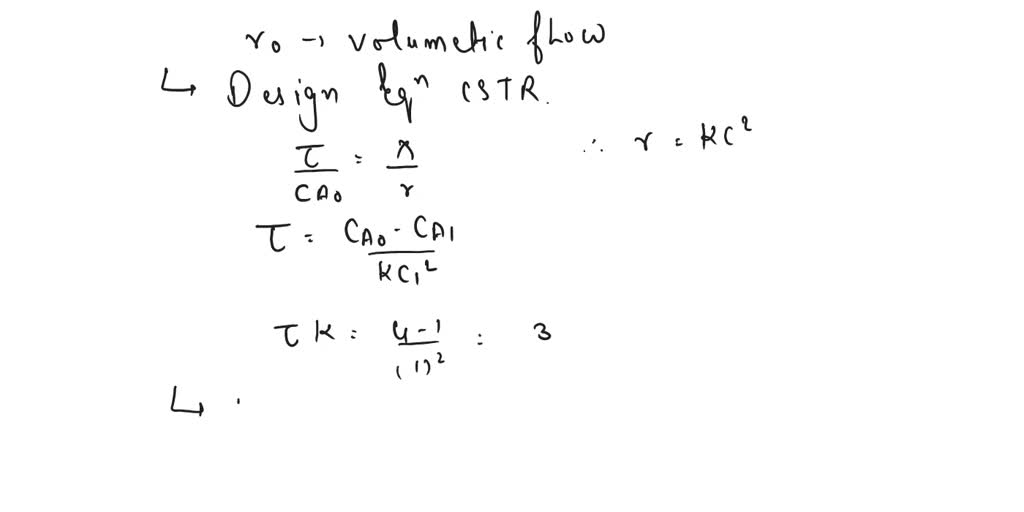 r₀ → volumetic flow
↳ Design Eqⁿ CSTR.
τ/CA₀ = x/r ∴ r = KC²
τ = (CA₀ - CA₁)/(KC₁²)
τK = (4-1)/(1)² = 3
↳